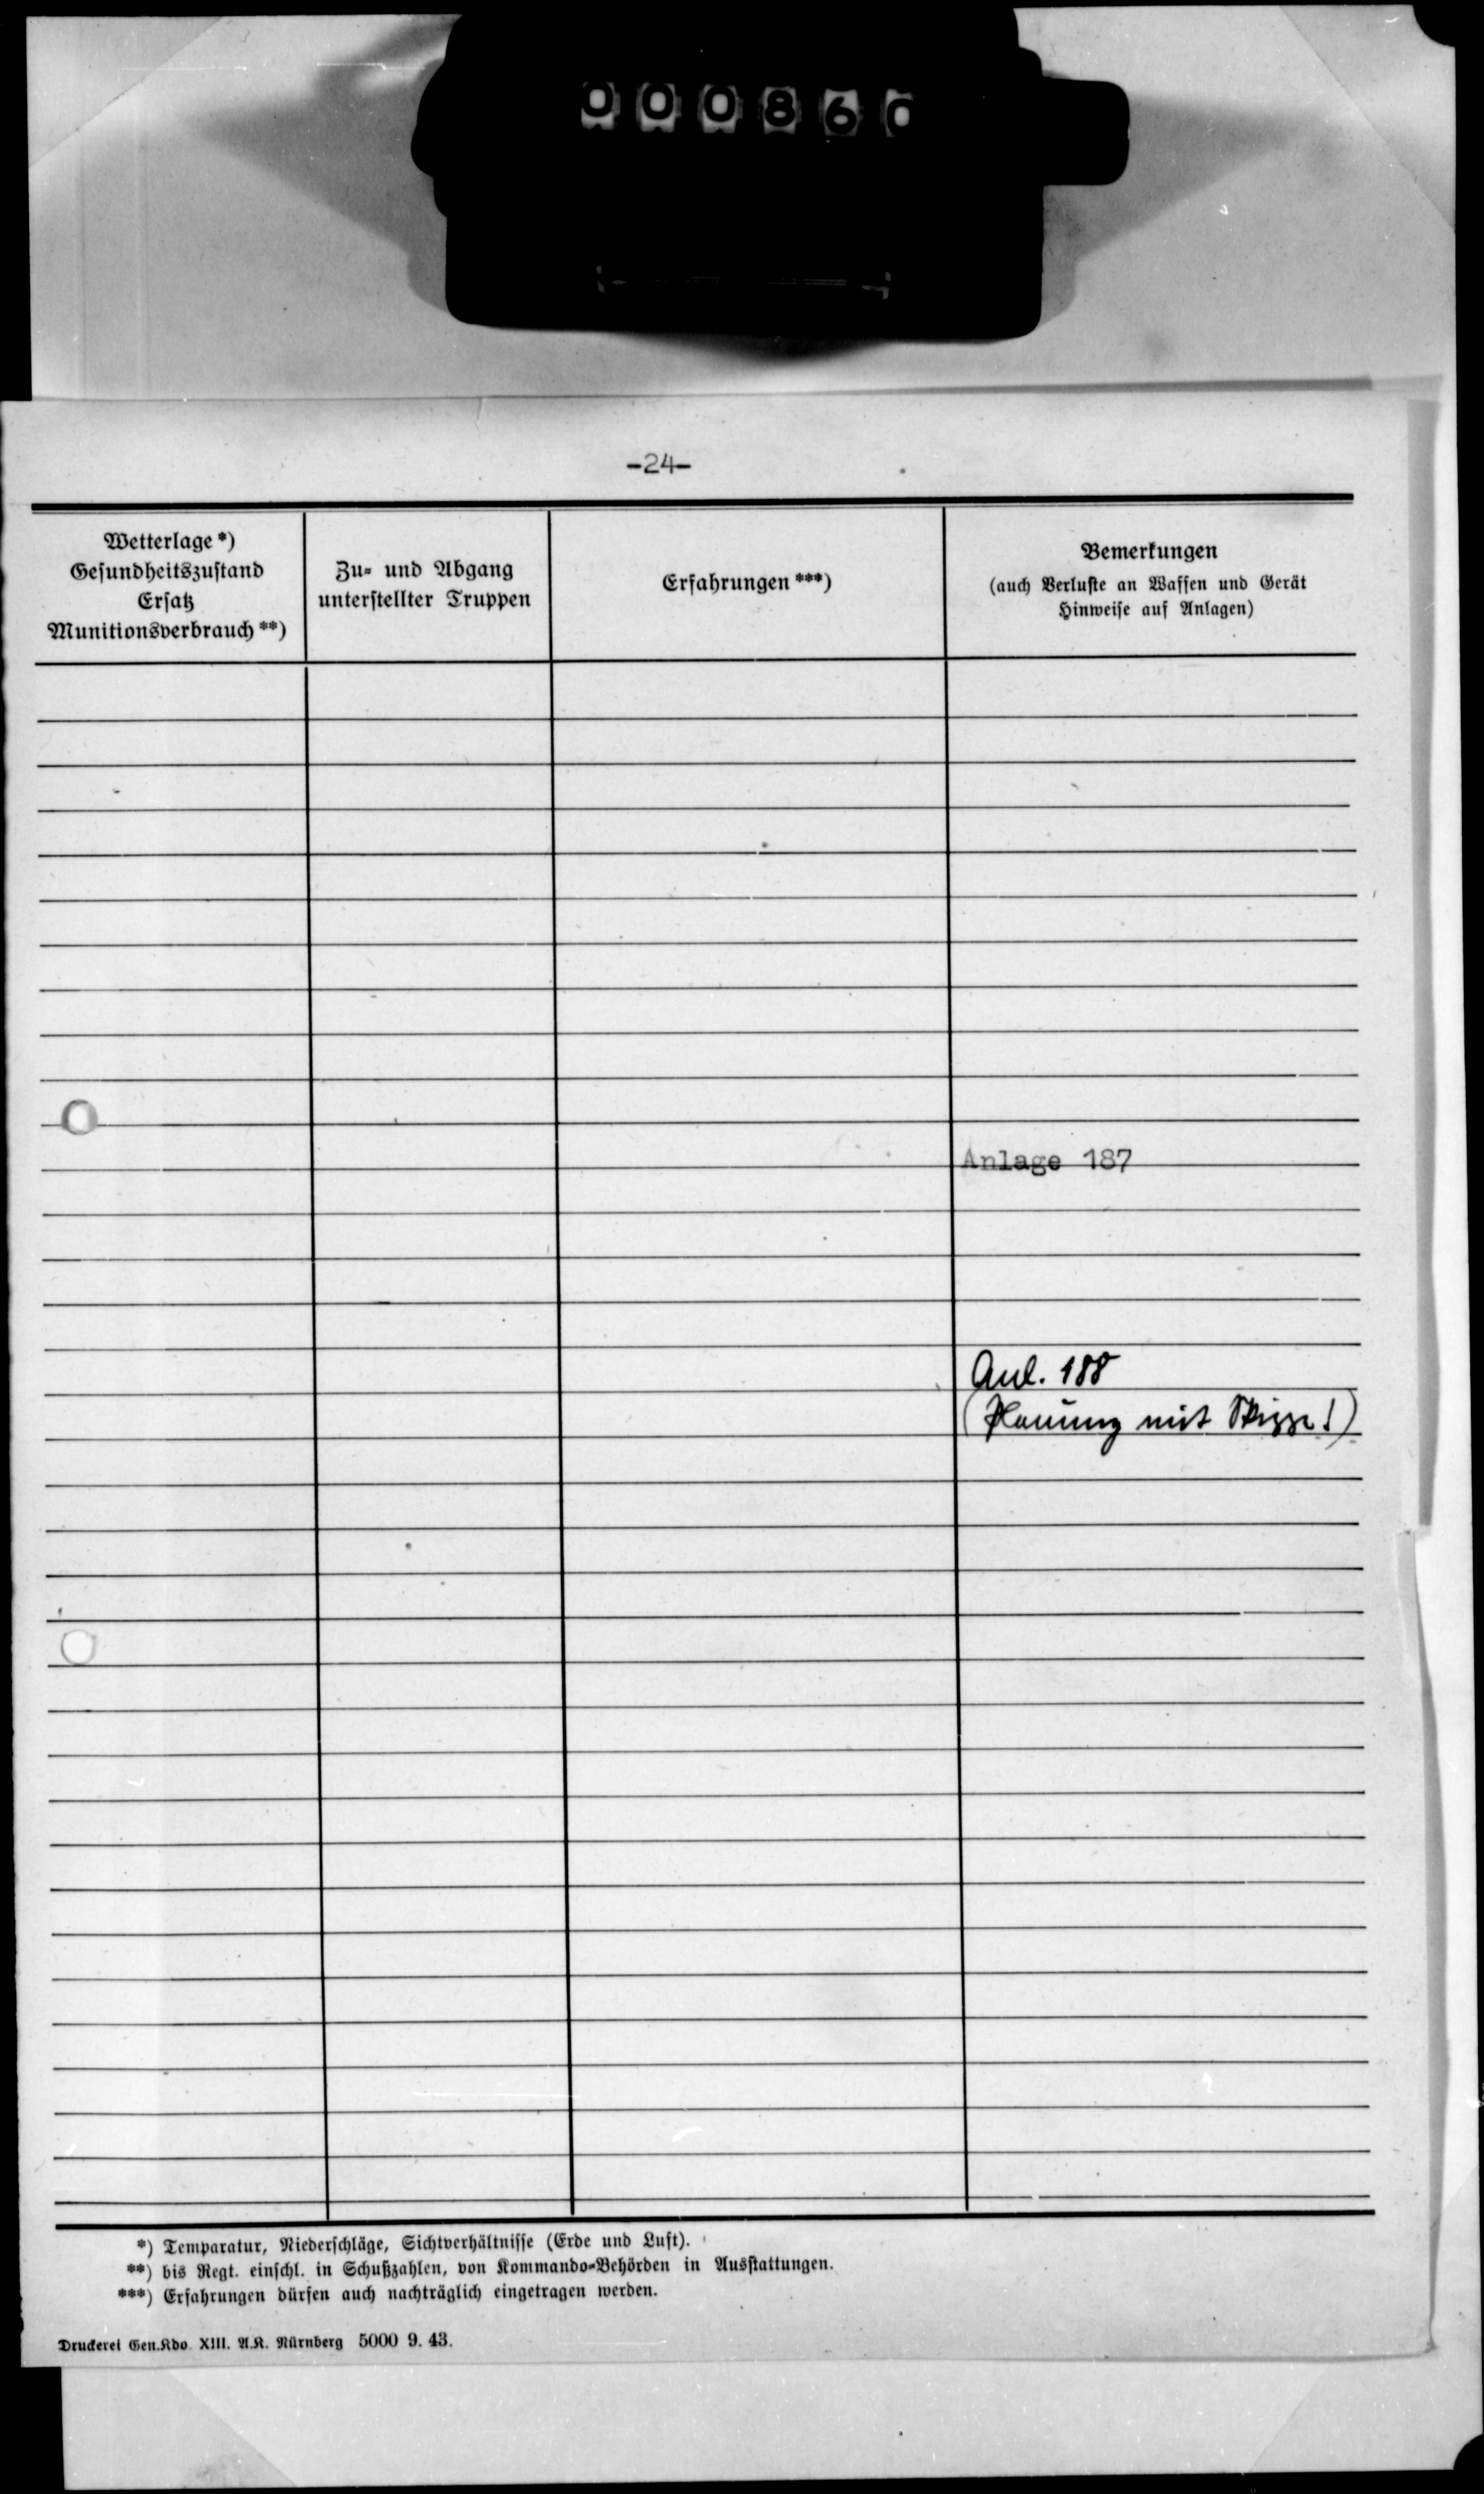 000860
-24-
Wetterlage *)
Gesundheitszustand
Ersatz
Munitionsverbrauch **)
Zu- und Abgang
unterstellter Truppen
Erfahrungen ***)
Bemerkungen
(auch Verluste an Waffen und Gerät
Hinweise auf Anlagen)
Anlage 187
Anl. 188
(Planung mit Skizze!)
*) Temparatur, Niederschläge, Sichtverhältnisse (Erde und Luft).
**) bis Regt. einschl. in Schußzahlen, von Kommando-Behörden in Ausstattungen.
***) Erfahrungen dürfen auch nachträglich eingetragen werden.
Druckerei Gen.Kdo. XIII. A.K. Nürnberg 5000 9. 43.